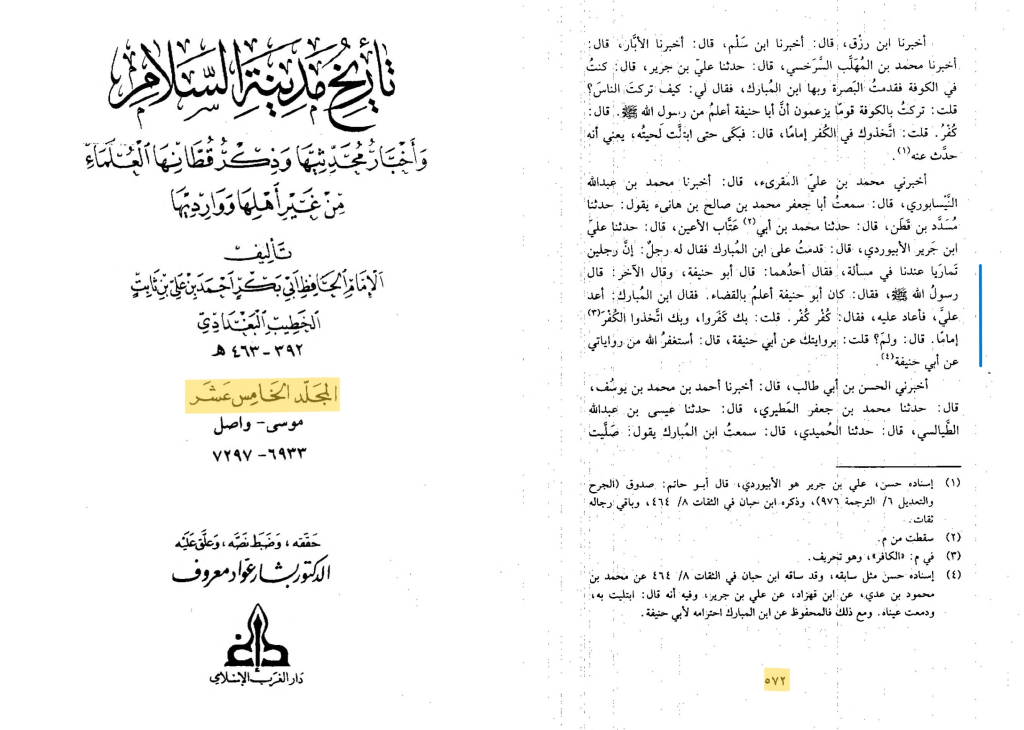 تاريخ مدينة السلام
وأخبار محدثيها وذكر قطانها العلماء
من غير أهلها ووارديها
تأليف
الإمام الحافظ أبي بكر أحمد بن علي بن ثابت
الخطيب البغدادي
٣٩٢ - ٤٦٣ هـ
المجلد الخامس عشر
موسى - واصل
٦٩٣٣ - ٧٢٩٧
حققه، وضبط نصه، وعلق عليه
الدكتور بشار عواد معروف
دار الغرب الإسلامي
أخبرنا ابن رزق، قال: أخبرنا ابن سَلْم، قال: أخبرنا الأبَّار، قال:
أخبرنا محمد بن المُهَلَّب السَّرَخسي، قال: حدثنا عليّ بن جرير، قال: كنتُ
في الكوفة فقدمتُ البَصرة وبها ابن المُبارك، فقال لي: كيف تركتَ الناسَ؟
قلت: تركتُ بالكوفة قومًا يزعمون أنَّ أبا حنيفة أعلمُ من رسول الله ﷺ. قال:
كُفْرُ. قلت: اتَّخذوك في الكُفر إمامًا، قال: فبكَى حتى ابتلَّت لَحيتُه، يعني أنه
حدَّث عنه(١).
أخبرني محمد بن عليّ المقرىء، قال: أخبرنا محمد بن عبدالله
النَّيْسابوري، قال: سمعتُ أبا جعفر محمد بن صالح بن هانىء يقول: حدثنا
مُسَدَّد بن قَطَن، قال: حدثنا محمد بن أبي(٢) عَتَّاب الأعين، قال: حدثنا عليّ
ابن جَرير الأبيوردي، قال: قدمتُ على ابن المُبارك فقال له رجلٌ: إنَّ رجلين
تَمارَيا عندنا في مسألة، فقال أحدُهما: قال أبو حنيفة، وقال الآخر: قال
رسولُ الله ﷺ، فقال: كان أبو حنيفة أعلمُ بالقضاء. فقال ابن المُبارك: أعد
عليَّ، فأعاد عليه، فقال: كُفْر كُفْر. قلت: بك كَفَروا، وبك اتَّخذوا الكُفْرَ(٣)
إمامًا. قال: ولمَ؟ قلت: بروايتك عن أبي حنيفة، قال: أستغفرُ الله من رواياتي
عن أبي حنيفة(٤).
أخبرني الحسن بن أبي طالب، قال: أخبرنا أحمد بن محمد بن يوسُف،
قال: حدثنا محمد بن جعفر المَطيري، قال: حدثنا عيسى بن عبدالله
الطَّيالسي، قال: حدثنا الحُميدي، قال: سمعتُ ابن المُبارك يقول: صَلَّيت
(١) إسناده حسن، علي بن جرير هو الأبيوردي، قال أبو حاتم: صدوق (الجرح
والتعديل ٦/ الترجمة ٩٧٦)، وذكره ابن حبان في الثقات ٨/ ٤٦٤، وباقي رجاله
ثقات.
(٢) سقطت من م.
(٣) في م: «الكافر»، وهو تحريف.
(٤) إسناده حسن مثل سابقه، وقد ساقه ابن حبان في الثقات ٨/ ٤٦٤ عن محمد بن
محمود بن عدي، عن ابن قهزاد، عن علي بن جرير، وفيه أنه قال: ابتليت به،
ودمعت عيناه. ومع ذلك فالمحفوظ عن ابن المبارك احترامه لأبي حنيفة.
٥٧٢